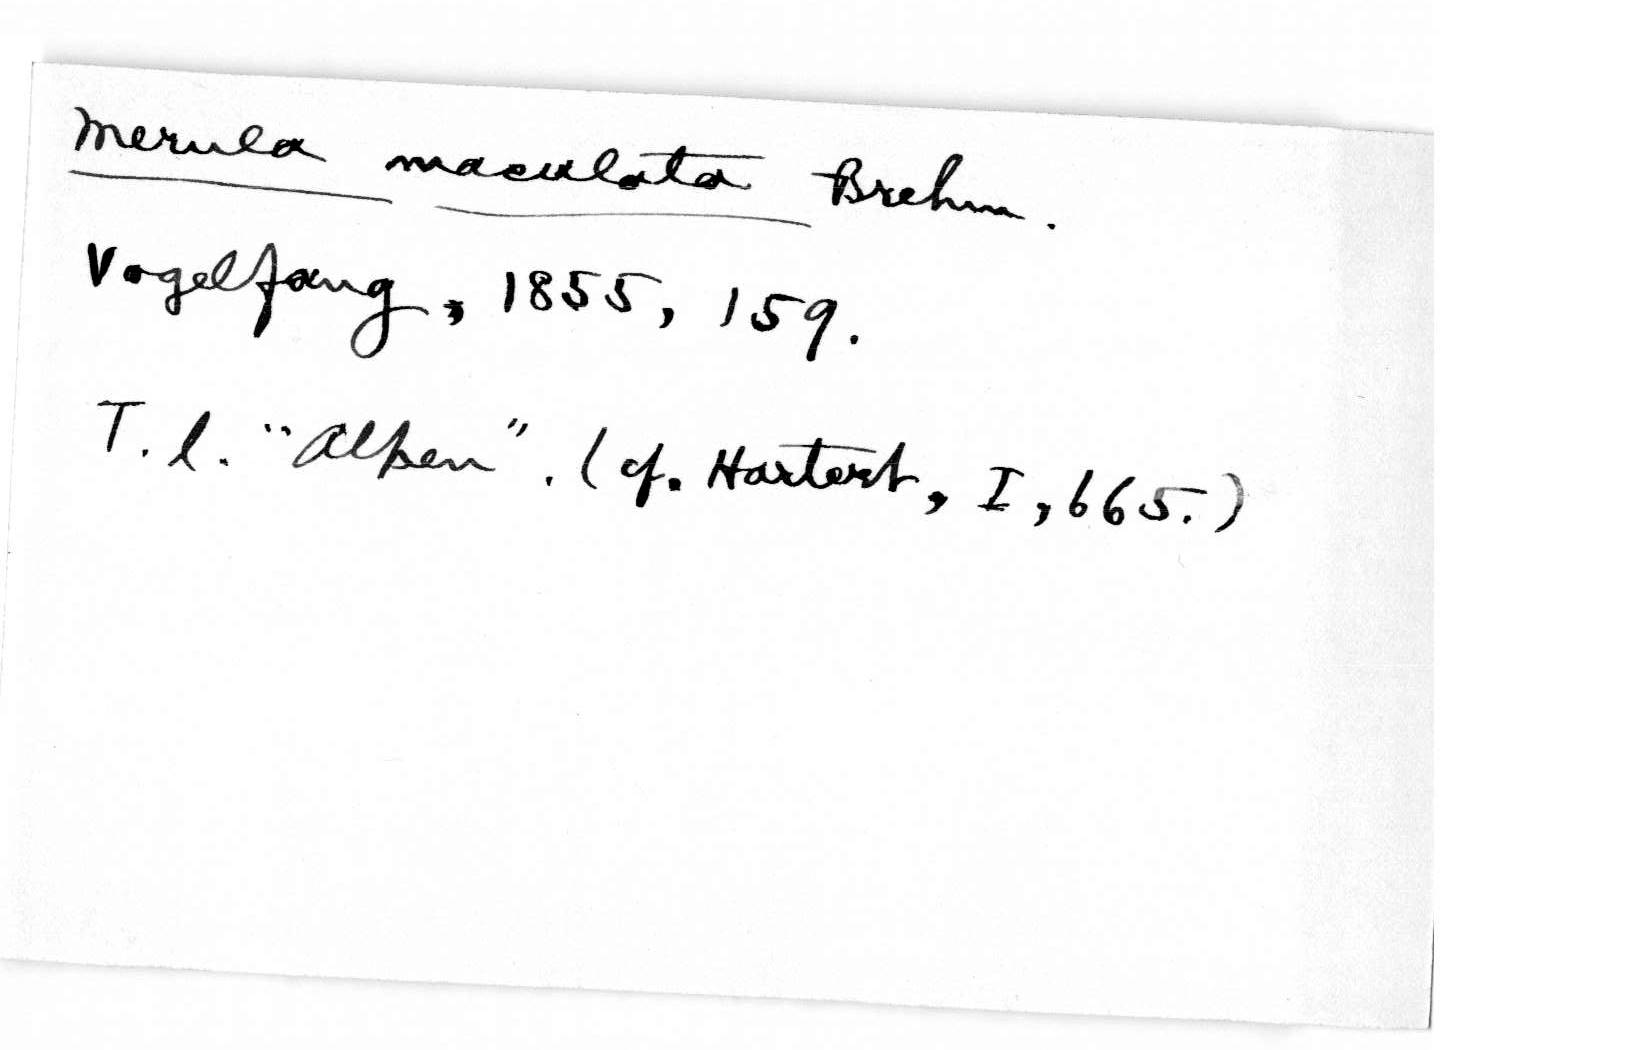 Merula maculata Brehm.
Vogelfang, 1855, 159.
T. l. "Alpen". (cf. Hartert, I, 665.)